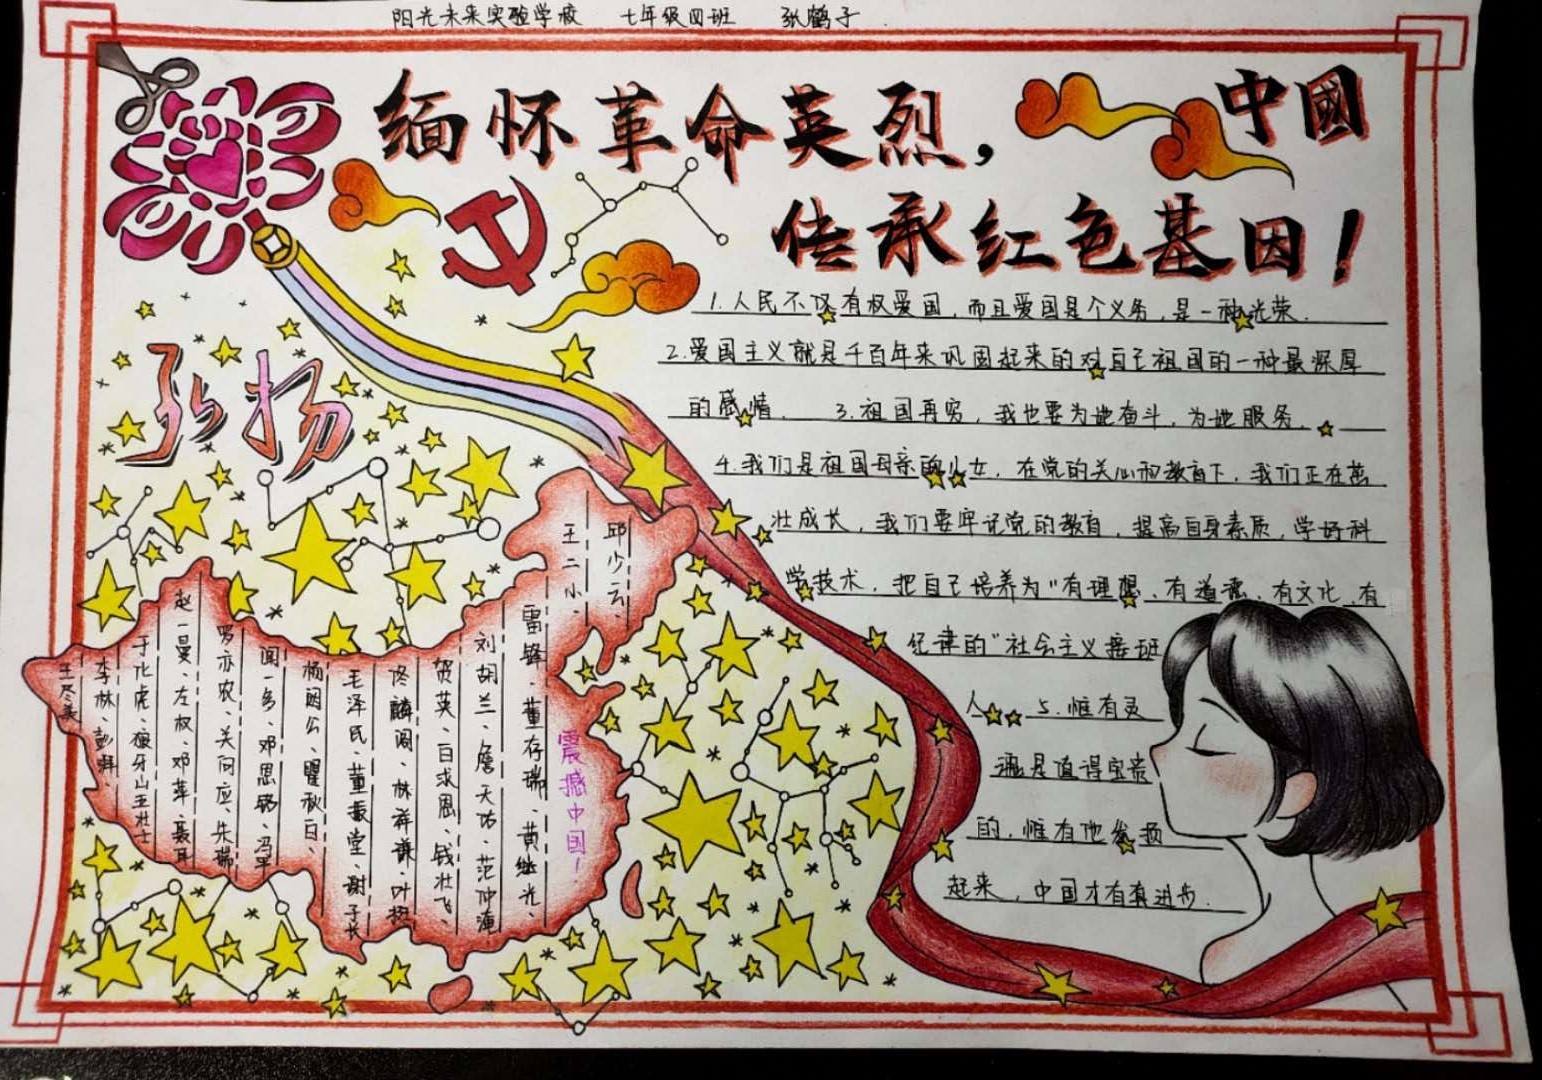 阳光未来实验学校 七年级四班 张鹤子
缅怀革命英烈，
中國
传承红色基因！
弘扬
1.人民不仅有权爱国，而且爱国是个义务，是一种光荣．
2.爱国主义就是千百年来巩固起来的对自己祖国的一种最深厚
的感情． 3.祖国再穷，我也要为她奋斗，为她服务．
4.我们是祖国母亲的儿女，在党的关心和教育下，我们正在茁
壮成长，我们要牢记党的教育，提高自身素质，学好科
学技术，把自己培养为"有理想、有道德、有文化、有
纪律的"社会主义接班
人 5.惟有灵
魂是值得宝贵
的，惟有他发扬
起来，中国才有真进步．
邱少云、
王二小、
震撼中国！
雷锋、董存瑞、黄继光、
刘胡兰、詹天佑、范仲淹
贺英、白求恩、钱壮飞、
佟麟阁、林祥谦、叶挺
毛泽民、董振堂、谢子长
杨闇公、瞿秋白、
闻一多、邓恩铭、冯平
罗亦农、关向应、朱瑞
赵一曼、左权、邓萍、聂耳
于化虎、狼牙山五壮士
李林、彭湃、
王尽美